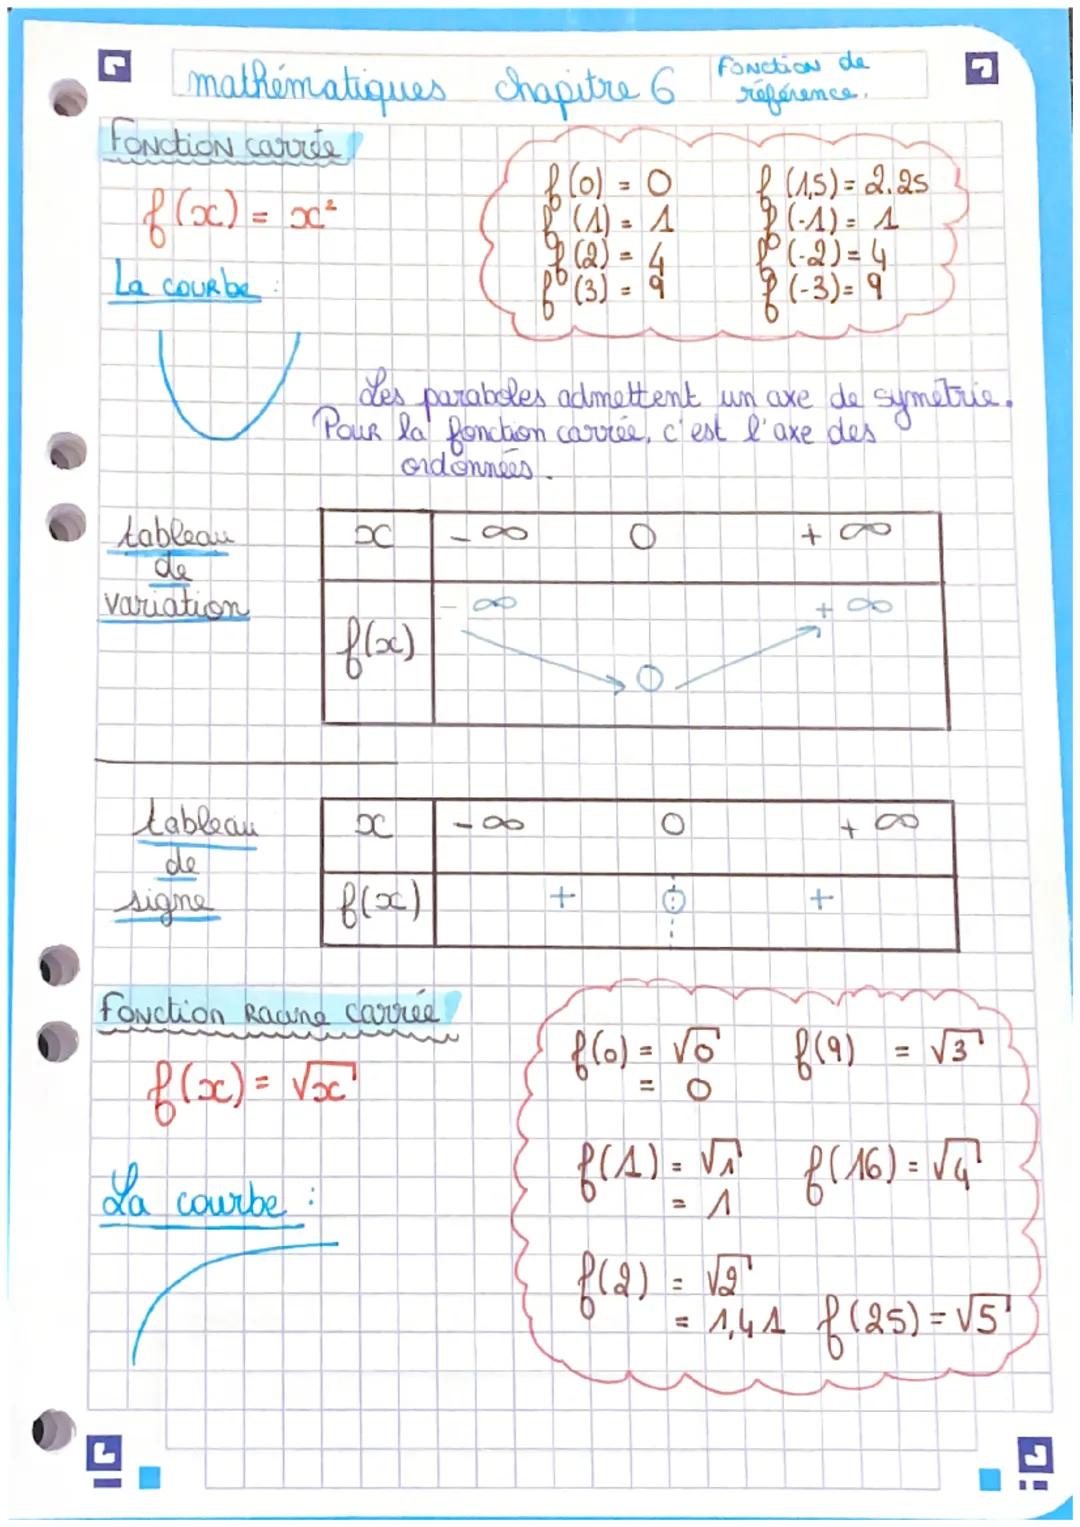 mathématiques chapitre 6 Fonction de référence.
Fonction carrée
f(x) = x²
f(0) = 0 f(1,5) = 2.25
f(1) = 1 f(-1) = 1
f(2) = 4 f(-2) = 4
f(3) = 9 f(-3) = 9
La courbe :
Les paraboles admettent un axe de symétrie.
Pour la fonction carrée, c'est l'axe des
ordonnées.
tableau de variation
x -∞ 0 +∞
f(x) -∞ 0 +∞
tableau de signe
x -∞ 0 +∞
f(x) + 0 +
Fonction Racine carrée
f(x) = √x
f(0) = √0 f(9) = √3
= 0
f(1) = √1 f(16) = √4
= 1
La courbe :
f(2) = √2
= 1,41 f(25) = √5